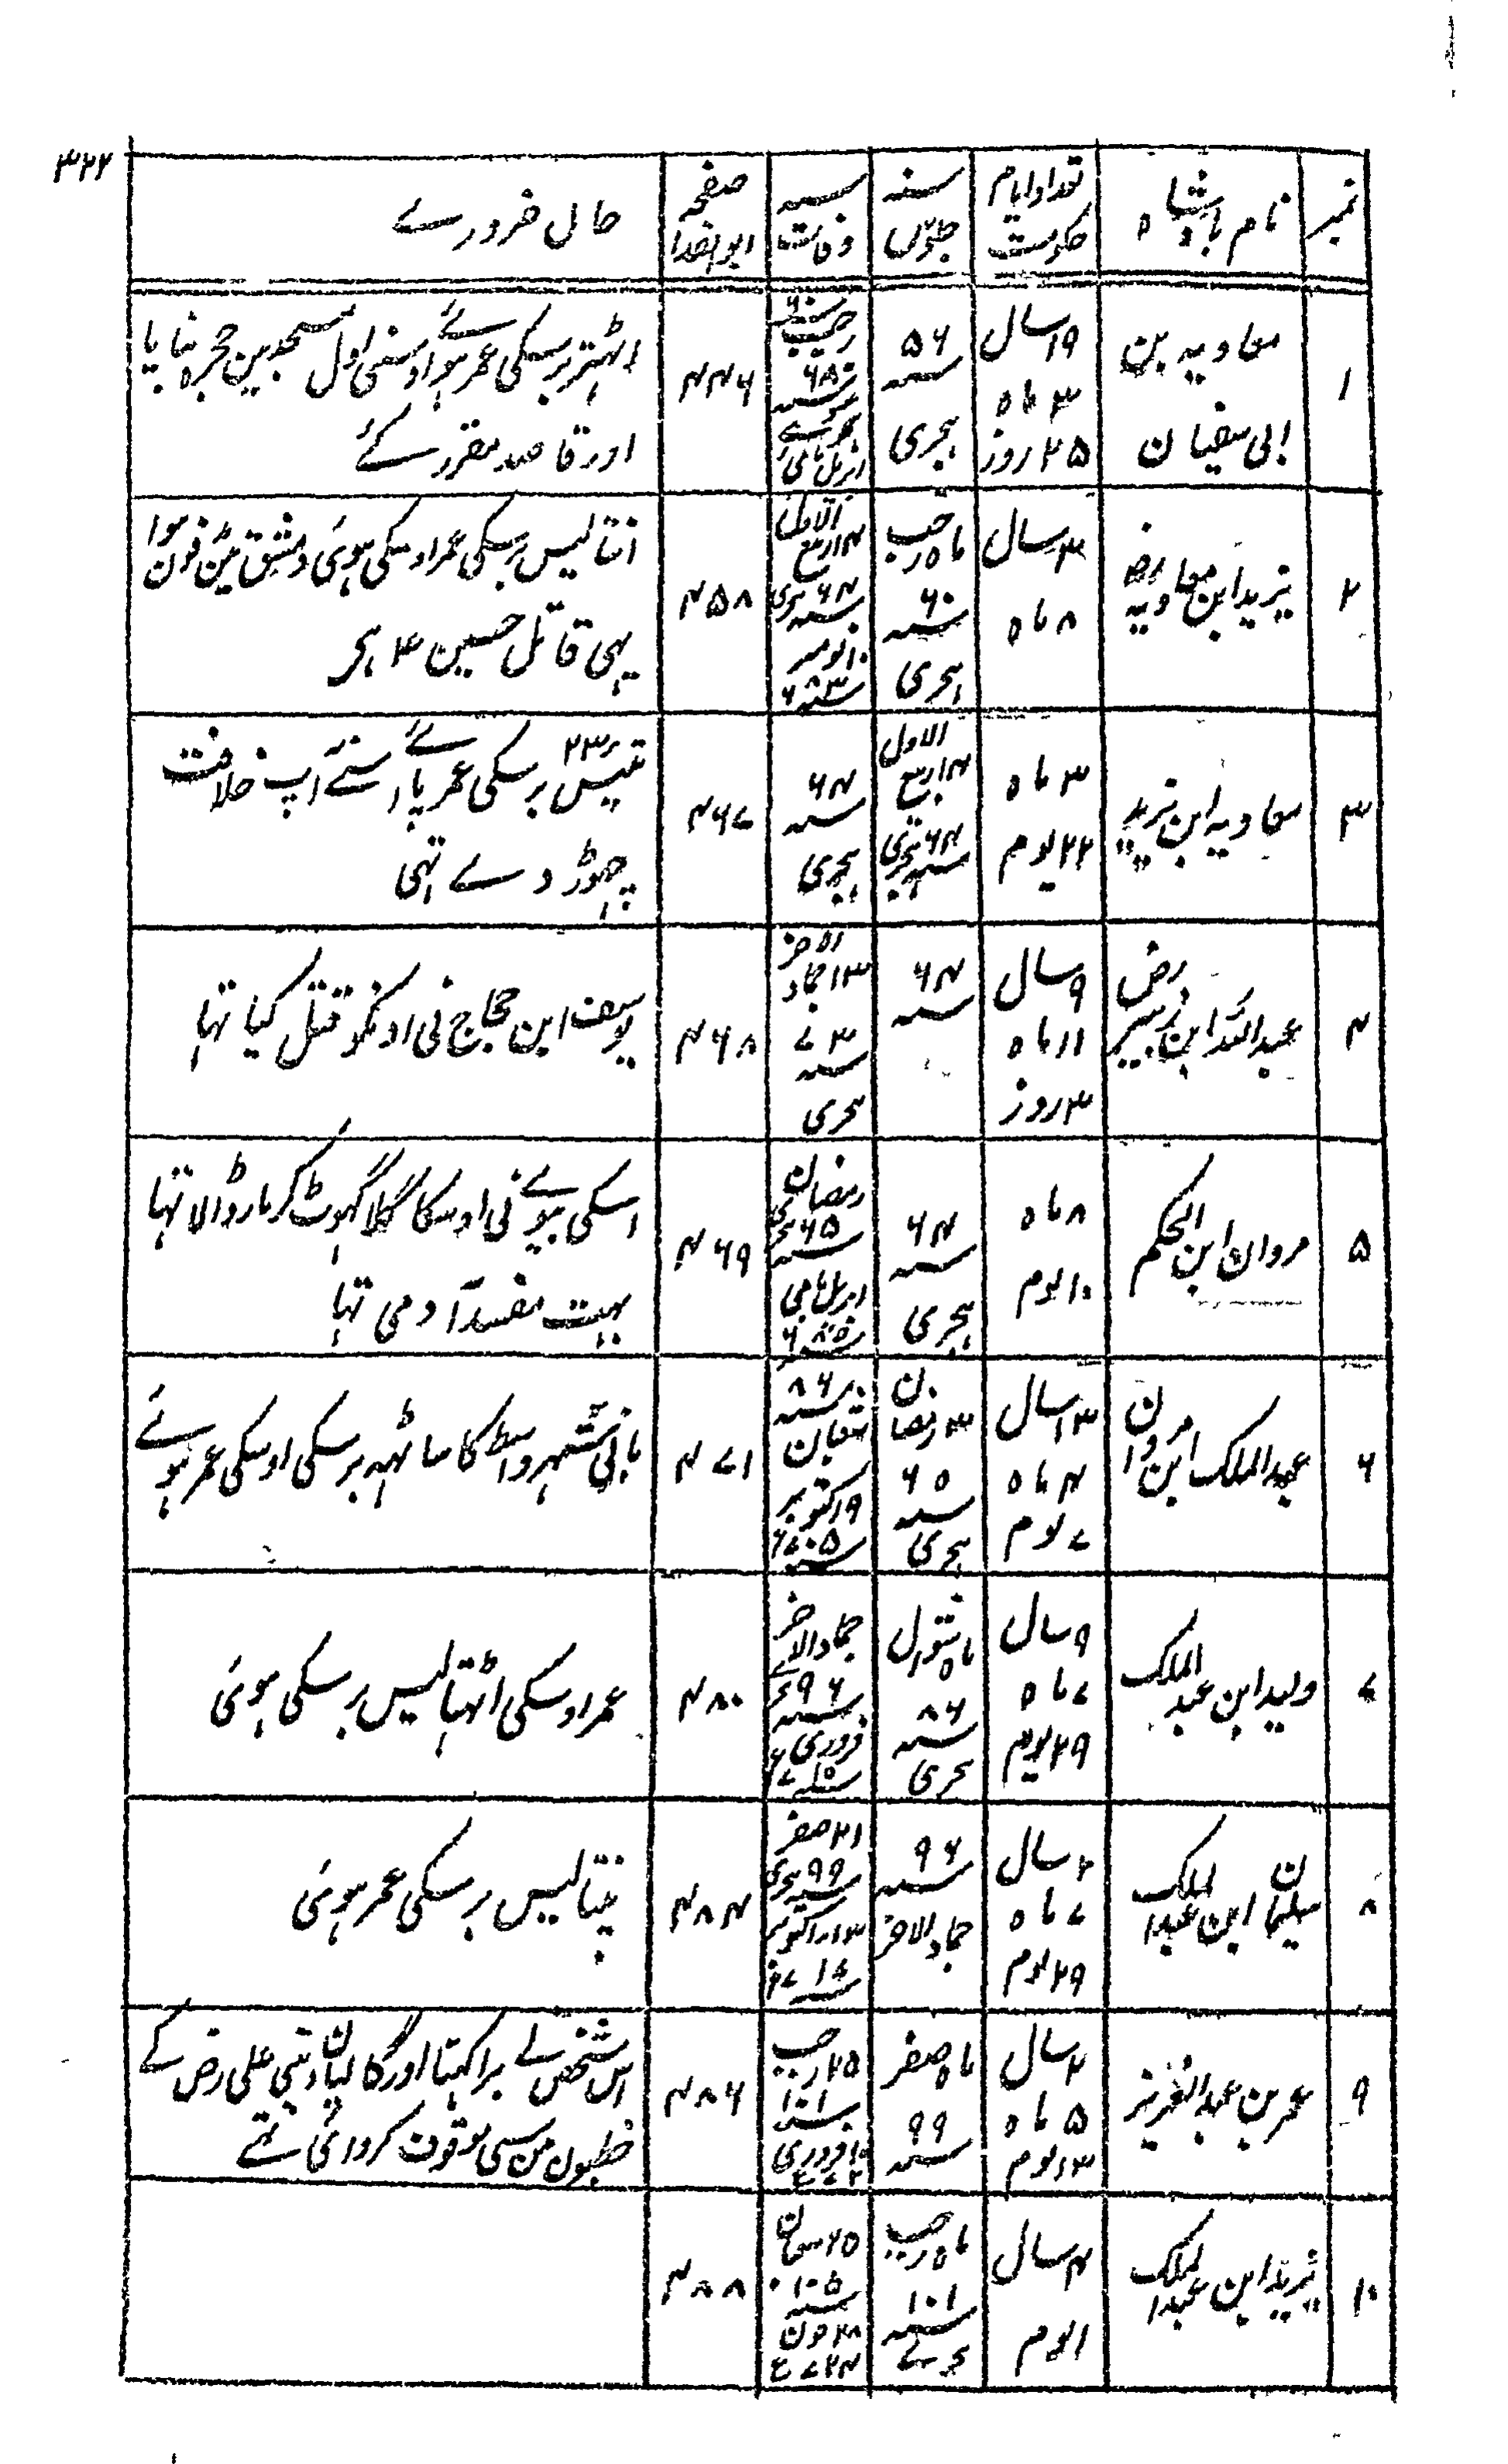 ۳۲۲
نمبر | نام بادشاہ | تعداد ایام حکومت | سنہ جلوس | سنہ وفات | صفحہ ابوالفدا | حال ضرورے
۱ | معاویہ بن ابی سفیان | ۱۹ سال ۳ ماہ ۲۵ روز | ۵۶ سنہ ہجری | رجب سنہ ۶۰ ۶۸۰ | ۴۴۶ | اٹہتر برسکی عمر ہوئے اوسنی اول مسجد مین حجرہ بنایا
اور قاصد مقرر کئے
۲ | یزید ابن معاویہ رض | ۳ سال ۸ ماہ | ماہ رجب سنہ ۶۰ ہجری | ۱۴ ربیع الاول سنہ ۶۴ ہجری ۱۰ نومبر سنہ ۶۸۳ | ۴۵۸ | انتالیس برسکی عمر اوسکی ہوئی دمشق مین فوت ہوا
یہی قاتل حسین ۳ ہجر
۳ | معاویہ ابن یزید | ۳ ماہ ۲۲ یوم | ۱۴ ربیع الاول سنہ ۶۴ ہجری | سنہ ۶۴ ہجری | ۴۶۷ | تئیس ۲۳ برسکی عمر پائے اسنے آپ خلافت
چہوڑ دے تہی
۴ | عبد اللہ ابن زبیر رض | ۹ سال ۱۱ ماہ ۳ روز | سنہ ۶۴ | ۱۳ جماد الاخر سنہ ۷۳ ہجری | ۴۶۸ | یوسف ابن حجاج نی اونکو قتل کیا تہا
۵ | مروان ابن الحکم | ۸ ماہ ۱۰ یوم | سنہ ۶۴ ہجری | رمضان سنہ ۶۵ ہجری اپریل مامی | ۴۶۹ | اسکی بیوئے نی اوسکا گلا گہوٹ کر مار ڈالا تہا
بہت مفسد آدمی تہا
۶ | عبد الملک ابن مروان | ۱۳ سال ۴ ماہ ۷ یوم | ۳ رمضان سنہ ۶۵ ہجری | سنہ ۸۶ شعبان ۱۹ اکتوبر سنہ ۷۰۵ | ۴۷۱ | بانی شہر واسط کا ساٹہہ برسکی اوسکی عمر ہوئے
۷ | ولید ابن عبد الملک | ۹ سال ۷ ماہ ۲۹ یوم | ماہ شوال سنہ ۸۶ ہجری | جماد الاخر سنہ ۹۶ فروری | ۴۸۰ | عمر اوسکی اٹہتالیس برسکی ہوئی
۸ | سلیمان ابن عبد الملک | ۲ سال ۷ ماہ ۲۹ یوم | سنہ ۹۶ جماد الاخر | ۲۱ صفر سنہ ۹۹ ہجری ۱۳ اکتوبر سنہ ۷۱۷ | ۴۸۴ | پنتالیس برسکی عمر ہوئی
۹ | عمر بن عبد العزیز | ۲ سال ۵ ماہ ۱۳ یوم | ماہ صفر سنہ ۹۹ | ۲۵ رجب سنہ ۱۰۱ ۱۰ فروری | ۴۸۶ | اس شخص نے برا کہنا اور گالیان دینی علی رض کے
خطبون من سی موقوف کروائی تہے
۱۰ | یزید ابن عبد الملک | ۴ سال ۱ یوم | ماہ رجب سنہ ۱۰۱ ہجرے | ۲۵ شعبان سنہ ۱۰۵ ۲۸ جون ۷۲۴ ع | ۴۸۸